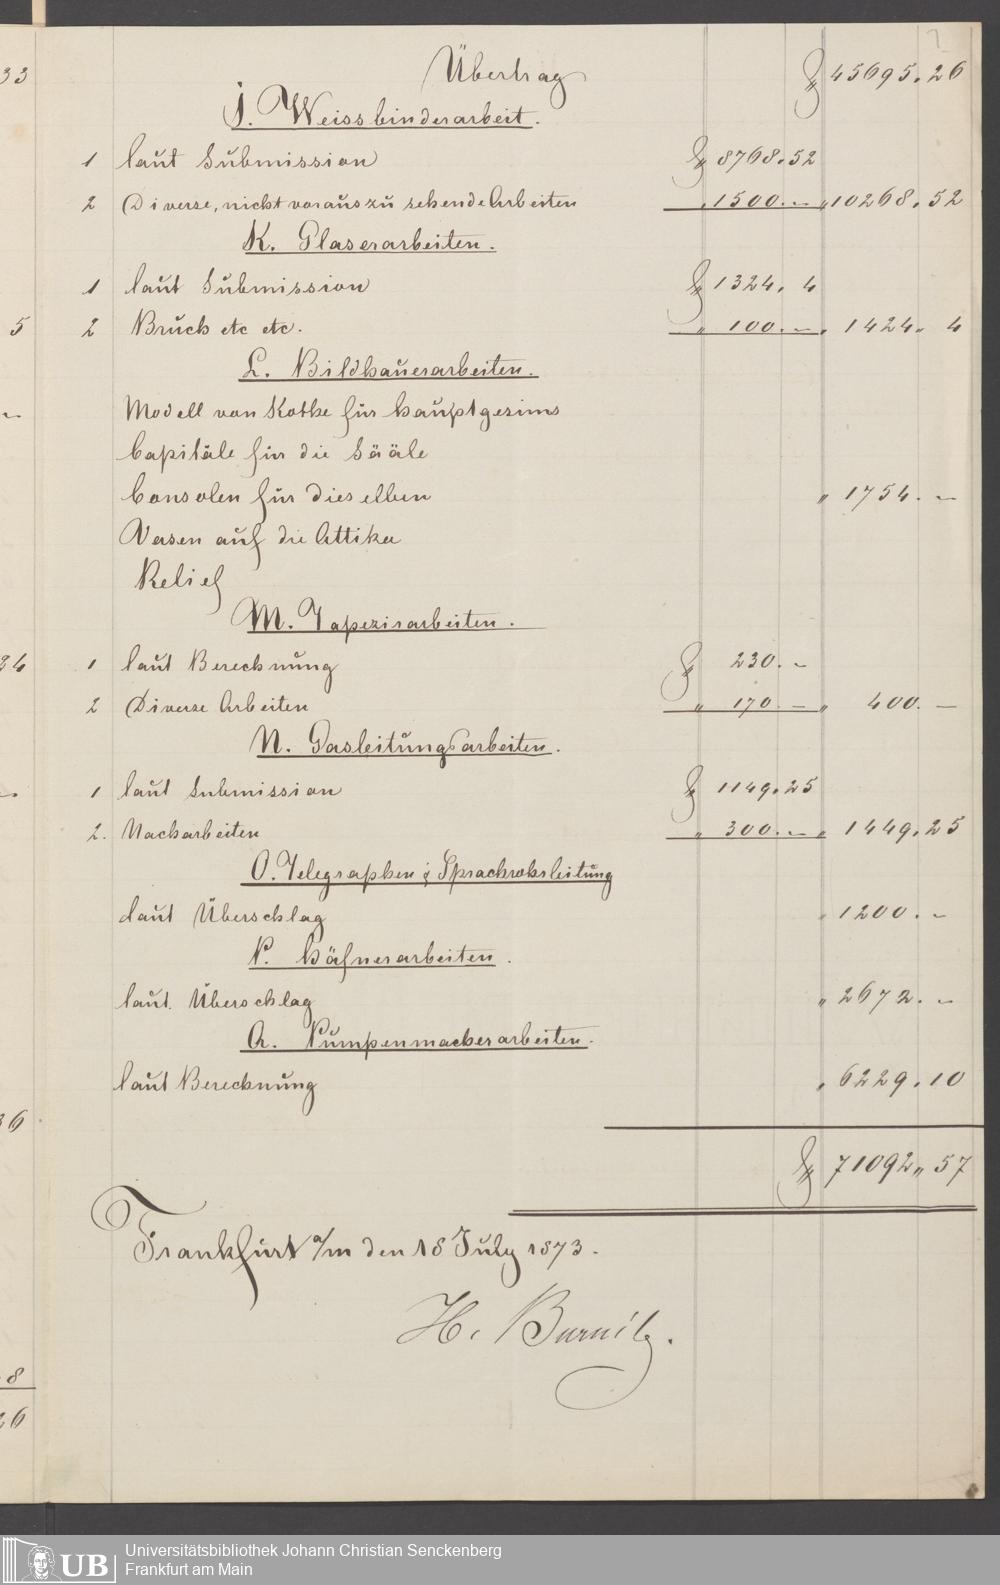 7
Übertrag f 45695. 26
J. Weissbinderarbeit.
1 laut Submission f 8768. 52
2 Diverse, nicht vorauszu sehende Arbeiten " 1500. – " 10268. 52
K. Glaserarbeiten.
1 laut Submission f 1324. 4
2 Bruch etc etc. " 100. – " 1424. 4
L. Bildhauerarbeiten.
Modell von Kothe für Hauptgesims
Capitäle für die Sääle
Consolen für dieselben " 1754. –
Vasen auf die Attika
Relief
M. Tapezirarbeiten.
1 laut Berechnung f 230. –
2 Diverse Arbeiten " 170. – " 400. –
N. Gasleitungsarbeiten.
1 laut Submission f 1149. 25
2. Nacharbeiten " 300. – " 1449. 25
O. Telegraphen & Sprachrohrleitung
laut Überschlag " 1200. –
P. Häfnerarbeiten.
laut Überschlag " 2672. –
Q. Pumpenmacherarbeiten.
laut Berechnung " 6229. 10
f 71092 " 57
Frankfurt a/m den 18 July 1873.
H. Burnitz.
33
5
–
34
–
36
8
26
UB
Universitätsbibliothek Johann Christian Senckenberg
Frankfurt am Main